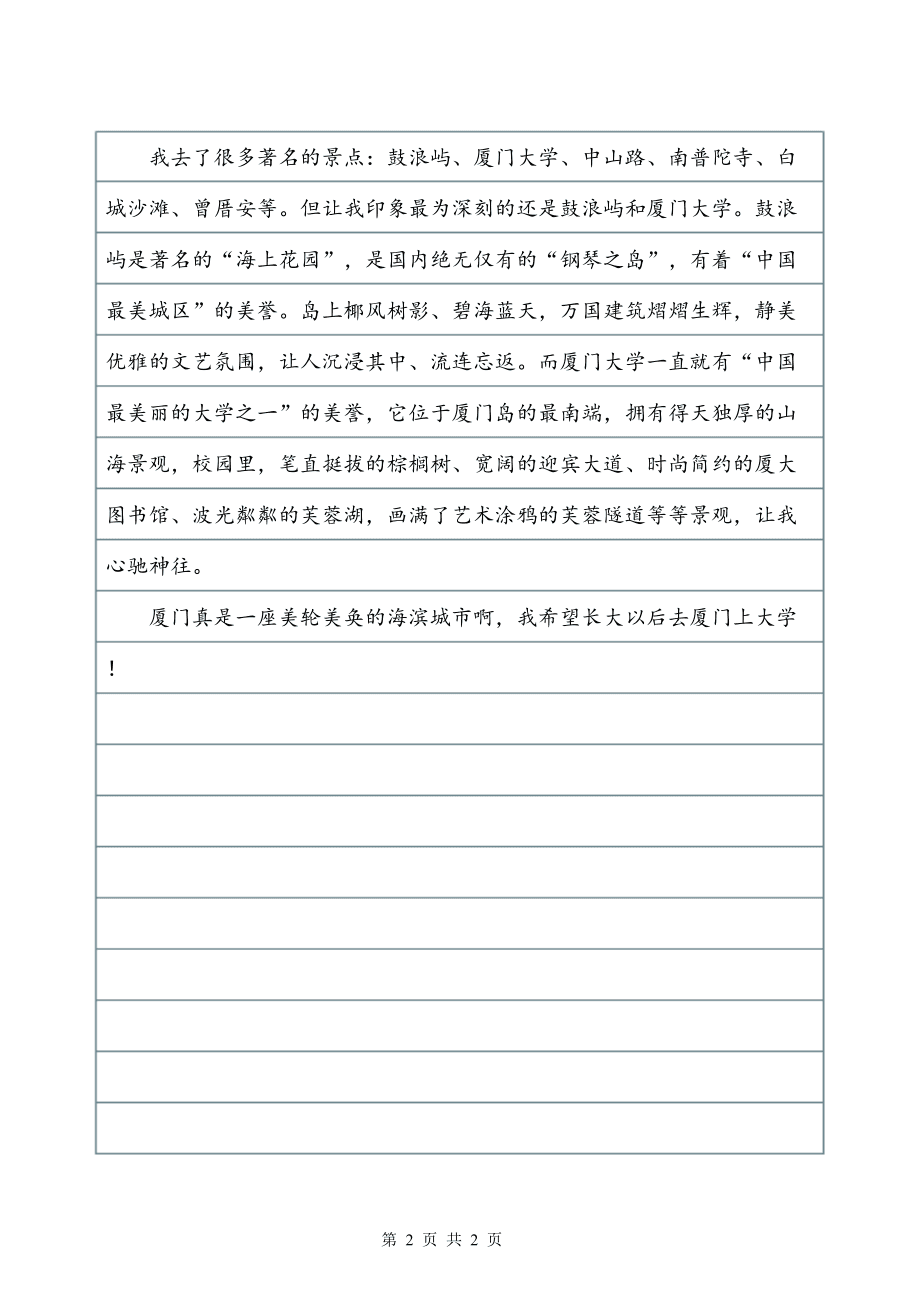 我去了很多著名的景点：鼓浪屿、厦门大学、中山路、南普陀寺、白
城沙滩、曾厝安等。但让我印象最为深刻的还是鼓浪屿和厦门大学。鼓浪
屿是著名的“海上花园”，是国内绝无仅有的“钢琴之岛”，有着“中国
最美城区”的美誉。岛上椰风树影、碧海蓝天，万国建筑熠熠生辉，静美
优雅的文艺氛围，让人沉浸其中、流连忘返。而厦门大学一直就有“中国
最美丽的大学之一”的美誉，它位于厦门岛的最南端，拥有得天独厚的山
海景观，校园里，笔直挺拔的棕榈树、宽阔的迎宾大道、时尚简约的厦大
图书馆、波光粼粼的芙蓉湖，画满了艺术涂鸦的芙蓉隧道等等景观，让我
心驰神往。
厦门真是一座美轮美奂的海滨城市啊，我希望长大以后去厦门上大学
！
第 2 页 共 2 页